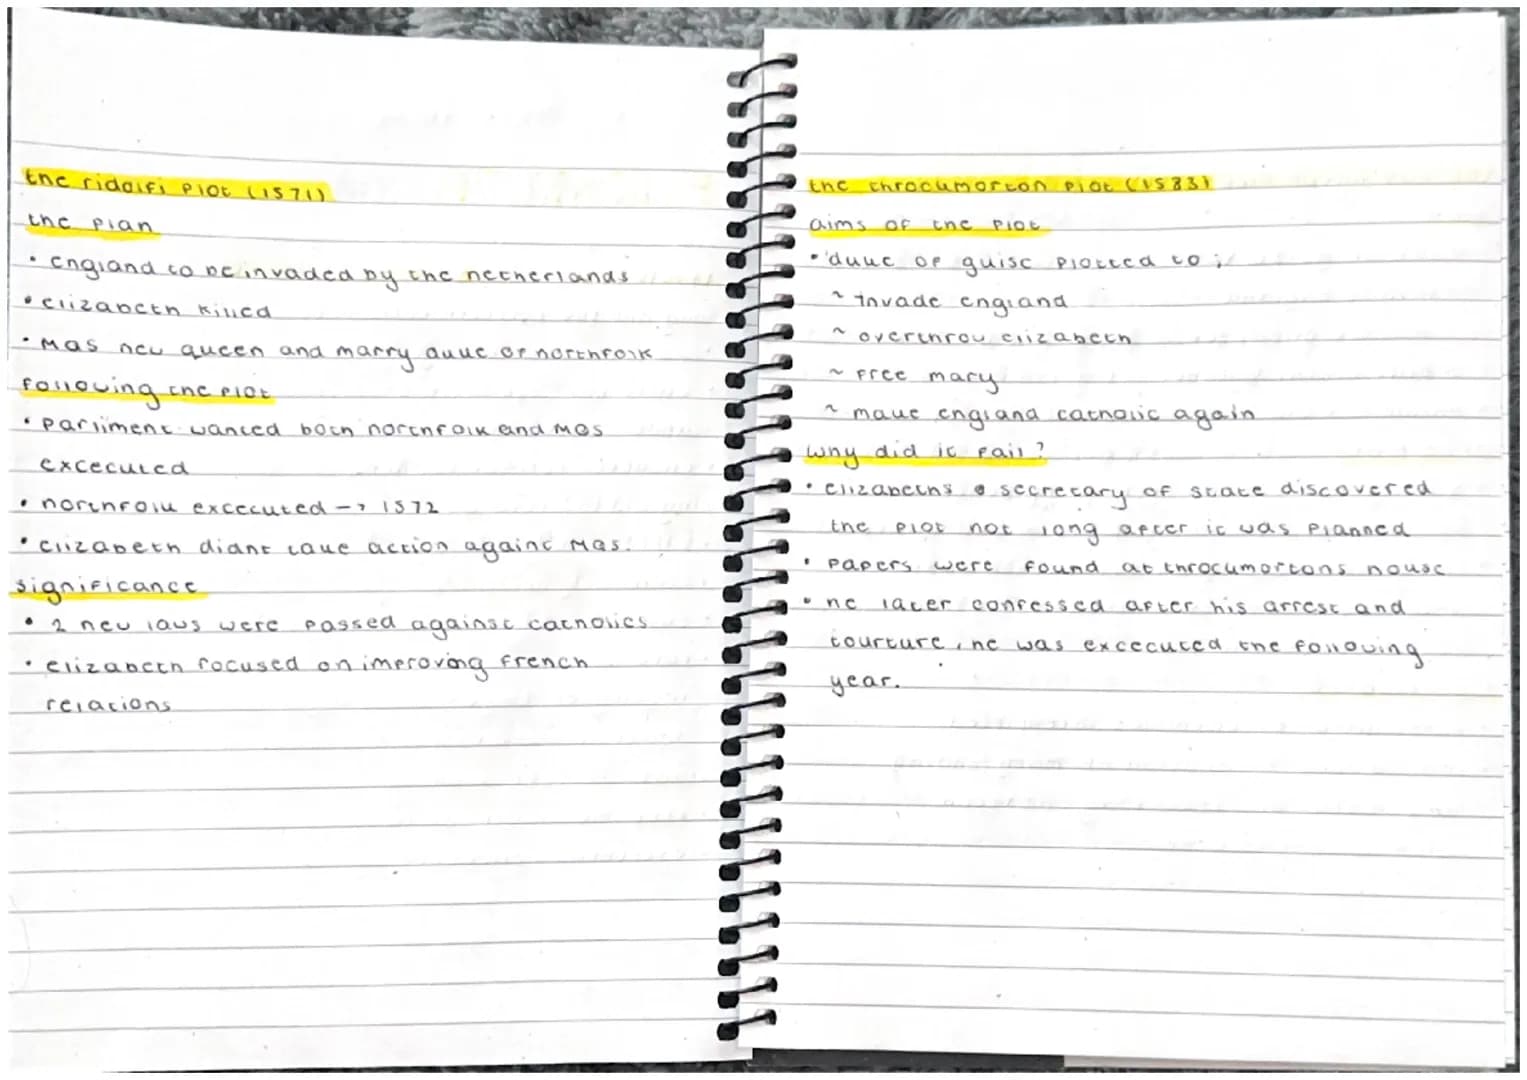 the ridolfi plot (1571)
the plan
• england to be invaded by the netherlands
• elizabeth killed
• MQS new queen and marry duke of northfolk
following the plot
• parliment wanted both northfolk and MQS
excecuted
• northfolk excecuted -> 1572
• elizabeth didnt take action againt MQS.
significance
• 2 new laws were passed against catholics
• elizabeth focused on improving french
relations
the throckmorton plot (1583)
aims of the plot
• duke of guise plotted to ;
~ invade england
~ overthrow elizabeth
~ free mary
~ make england catholic again
why did it fail?
• elizabeths secretary of state discovered
the plot not long after it was planned
• papers were found at throckmortons house
• he later confessed after his arrest and
tourture, he was excecuted the following
year.